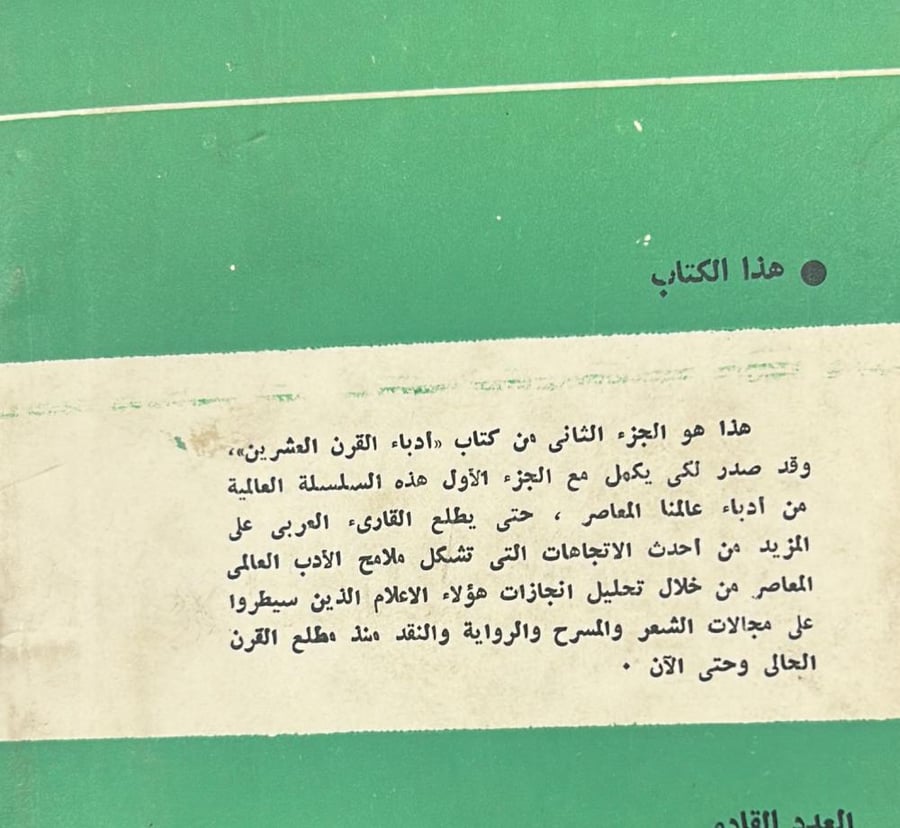 ● هذا الكتاب
هذا هو الجزء الثانى من كتاب «أدباء القرن العشرين»،
وقد صدر لكى يكمل مع الجزء الأول هذه السلسلة العالمية
من أدباء عالمنا المعاصر ، حتى يطلع القارىء العربى على
المزيد من أحدث الاتجاهات التى تشكل ملامح الأدب العالمى
المعاصر من خلال تحليل انجازات هؤلاء الاعلام الذين سيطروا
على مجالات الشعر والمسرح والرواية والنقد منذ مطلع القرن
الحالى وحتى الآن .
العدد القادم